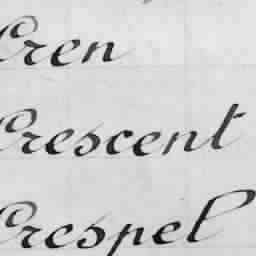 Cren
Crescent
Crespel